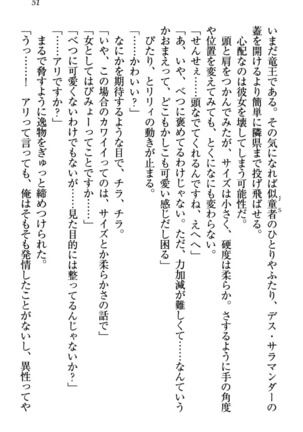 51
いまだ竜王である。その気になれば似童者のひとりやふたり、デス・サラマンダーの
蓋を開けるより簡単に隣県まで投げ飛ばせる。
心配なのは彼女を壊してしまう可能性だ。
頭と肩をつかんでみたが、サイズは小さく、硬度は柔らか。さするように手の角度
や位置を変えてみても、とくになにも変わらない。
「せんせぇ……頭なでてくれるんですね、えへへ」
「あ、いや、べつに褒めてるわけじゃない。ただ、力加減が難しくて……なんていう
かおまえって、どこもかしこも可愛い感じだし困る」
ぴたり、とリリィの動きが止まる。
「……かわいい？」
なにかを期待するような目で、チラ、チラ。
「いや、この場合のカワイイってのは、サイズとか柔らかさの話で」
「女としてはびみょーってことですか……」
「べつに可愛くないわけでもないが……見た目的には整ってるんじゃないか？」
「……アリですか？」
まるで脅すように逸物をぎゅっと締めつけられた。
「うっ……！　アリって言っても、俺はそもそも発情したことがないし、異性ってや